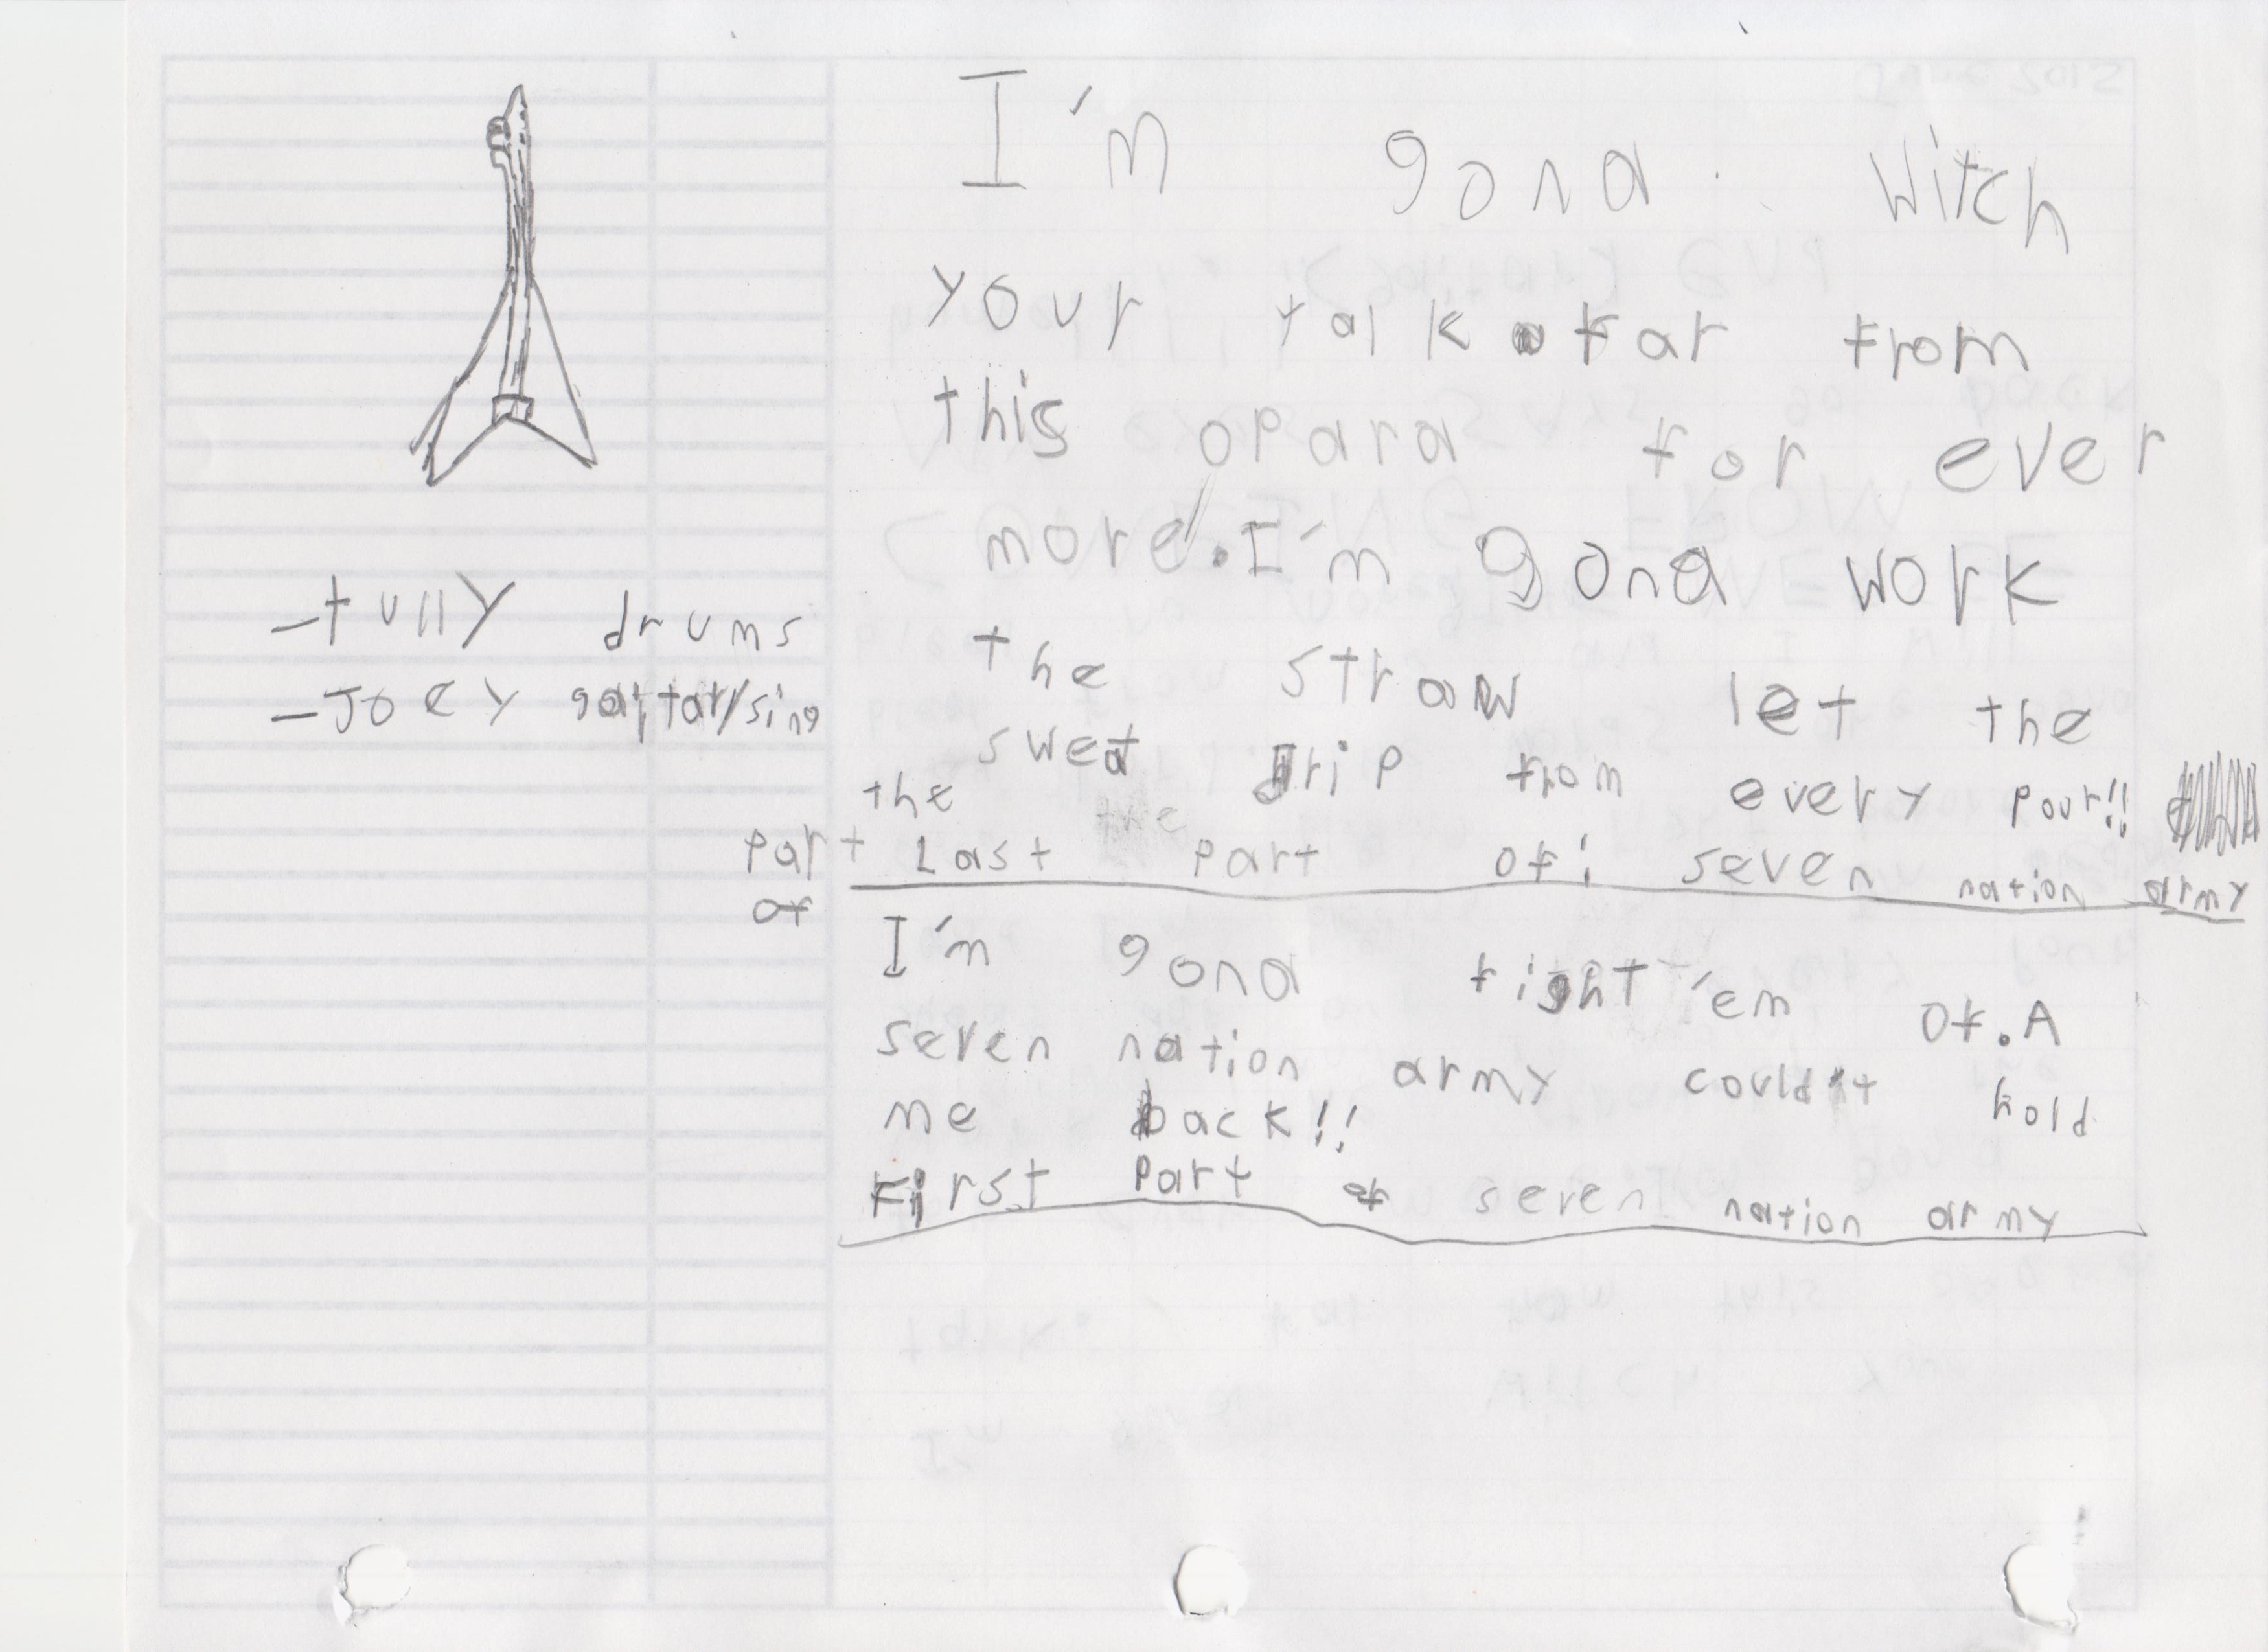 I'm gona witch
your talk far from
this opara for ever
more. I'm gona work
the straw let the
swet drip from every pour!!
the
part Last part of: seven nation army
of
I'm gona fight 'em of. A
seven nation army could't hold
me back!!
First part of seven nation army
- tully drums
- Joey gaitar/sing